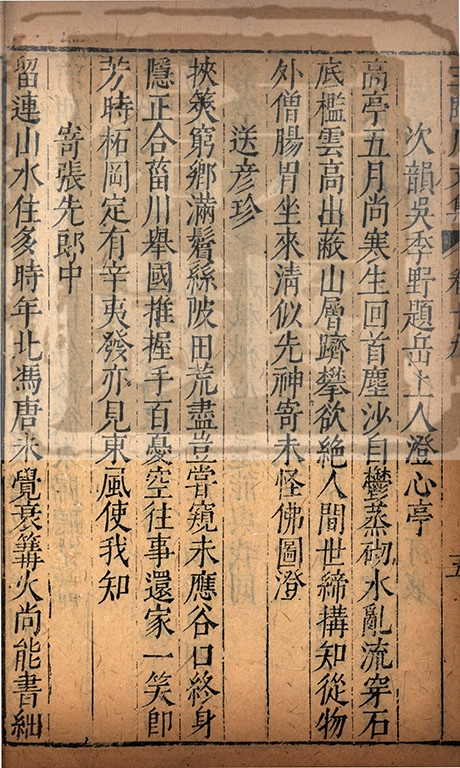 次韻吳季野題岳上人澄心亭
高亭五月尚寒生回首塵沙自鬱蒸砌水亂流穿石
底檻雲高出蔽山層躋攀欲絶人間世締搆知從物
外僧腸胃坐來清似先神寄未怪佛圖澄
送彦珍
挾筴窮鄉滿鬢絲陂田荒盡豈嘗窺未應谷口終身
隱正合菑川舉國推握手百憂空往事還家一笑即
芳時柘岡定有辛夷發亦見東風使我知
寄張先郎中
留連山水住多時年比馮唐未覺衰篝火尚能書紬